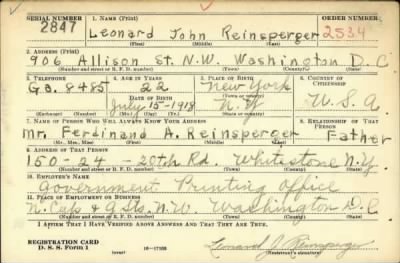 SERIAL NUMBER 1. NAME (Print) ORDER NUMBER
2847 Leonard John Reinsperger 2534
(First) (Middle) (Last)
2. ADDRESS (Print)
906 Allison St. N.W. Washington D.C
(Number and street or R. F. D. number) (Town) (County) (State)
3. TELEPHONE 4. AGE IN YEARS 5. PLACE OF BIRTH 6. COUNTRY OF CITIZENSHIP
Ga. 8485 22 New York
DATE OF BIRTH (Town or county)
July 15-1918 N.Y U.S.A
(Exchange) (Number) (Mo.) (Day) (Yr.) (State or country)
7. NAME OF PERSON WHO WILL ALWAYS KNOW YOUR ADDRESS 8. RELATIONSHIP OF THAT PERSON
Mr. Ferdinand A. Reinsperger Father
(Mr., Mrs., Miss) (First) (Middle) (Last)
9. ADDRESS OF THAT PERSON
150-24-20th Rd. Whitestone N.Y.
(Number and street or R. F. D. number) (Town) (County) (State)
10. EMPLOYER'S NAME
Government Printing Office
11. PLACE OF EMPLOYMENT OR BUSINESS
N. Cap. & G Sts. N.W. Washington D.C
(Number and street or R. F. D. number) (Town) (County) (State)
I AFFIRM THAT I HAVE VERIFIED ABOVE ANSWERS AND THAT THEY ARE TRUE.
REGISTRATION CARD
D. S. S. Form 1 16-17105 Leonard J. Reinsperger
(Registrant's signature)